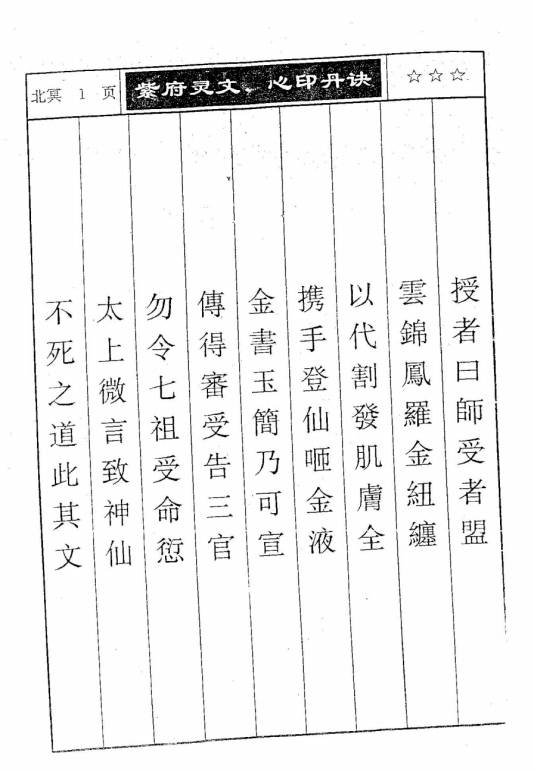 北冥 1 页 紫府灵文、心印丹诀 ☆☆☆
授者曰師受者盟
雲錦鳳羅金紐纏
以代割發肌膚全
携手登仙咂金液
金書玉簡乃可宣
傳得審受告三官
勿令七祖受命愆
太上微言致神仙
不死之道此其文